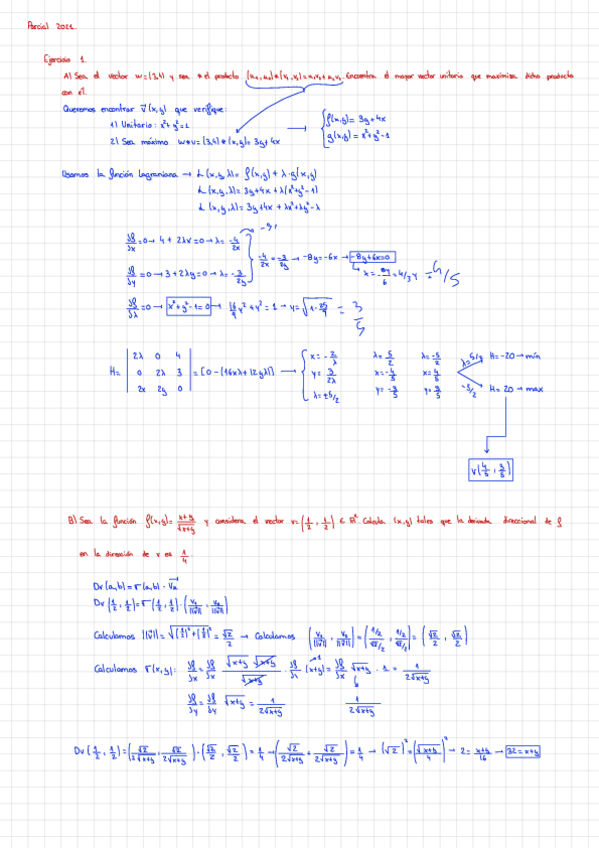 Parcial 2021
Ejercicio 1.
A) Sea el vector w=(3,4) y sea * el producto (u₁,u₂)*(v₁,v₂)=u₁v₂+u₂v₁. Encuentra el mayor vector unitario que maximiza dicho producto
con
Queremos encontrar v⃗(x,y) que verifique:
1) Unitario: x²+y²=1
2) Sea máximo w*v=(3,4)*(x,y)=3y+4x
f(x,y)=3y+4x
g(x,y)=x²+y²-1
Usamos la función lagraniana → L(x,y,λ)=f(x,y)+λ·g(x,y)
L(x,y,λ)=3y+4x+λ(x²+y²-1)
L(x,y,λ)=3y+4x+λx²+λy²-λ
∂f/∂x=0→ 4+2λx=0→λ=-4/2x
∂f/∂y=0→3+2λy=0→λ=-3/2y
-4/2x=-3/2y → -8y=-6x → -8y+6x=0
x=-8y/6=4/3y =4/5
∂f/∂λ=0→ x²+y²-1=0 → 16/9y²+y²=1 → y=√(1-25/9) = 3/5
H= |2λ 0 4| = [0-(16xλ+12yλ)] → x=-2/λ λ=5/2 λ=-5/2 λ=5/2 H=-20→mín
|0 2λ 3| y=3/2λ x=-4/5 x=4/5
|2x 2y 0| λ=±5/2 y=-3/5 y=3/5 -5/2 H=20→max
v(4/5, 3/5)
B) Sea la función f(x,y)=x+y/√x+y y considera el vector v=(1/2, 1/2) ∈ ℝ². Calcula (x,y) tales que la derivada direccional de f
en la dirección de v es 1/4.
Dv(a,b)=∇(a,b)·
Dv(1/2,1/2)=∇(1/2,1/2)·(v₁/||v⃗||, v₂/||v⃗||)
Calculamos ||v⃗||=√((1/2)²+(1/2)²)=√2/2 → Calculamos (v₁/||v⃗||, v₂/||v⃗||)=(1/2/√2/2, 1/2/√2/2)=(√2/2, √2/2)
Calculamos ∇(x,y): ∂f/∂x=∂f/∂x √x+y √x+y/√x+y · ∂f/∂x (x+y)=∂f/∂x √x+y · 1=1/2√x+y
∂f/∂y=∂f/∂y √x+y=1/2√x+y 1/2√x+y
Dv(1/2,1/2)=(√2/2√x+y, √2/2√x+y)·(√2/2, √2/2)=1/4→(√2/2√x+y+√2/2√x+y)=1/4→(√2)²=(√x+y/4)²→2=x+y/16→32=x+y